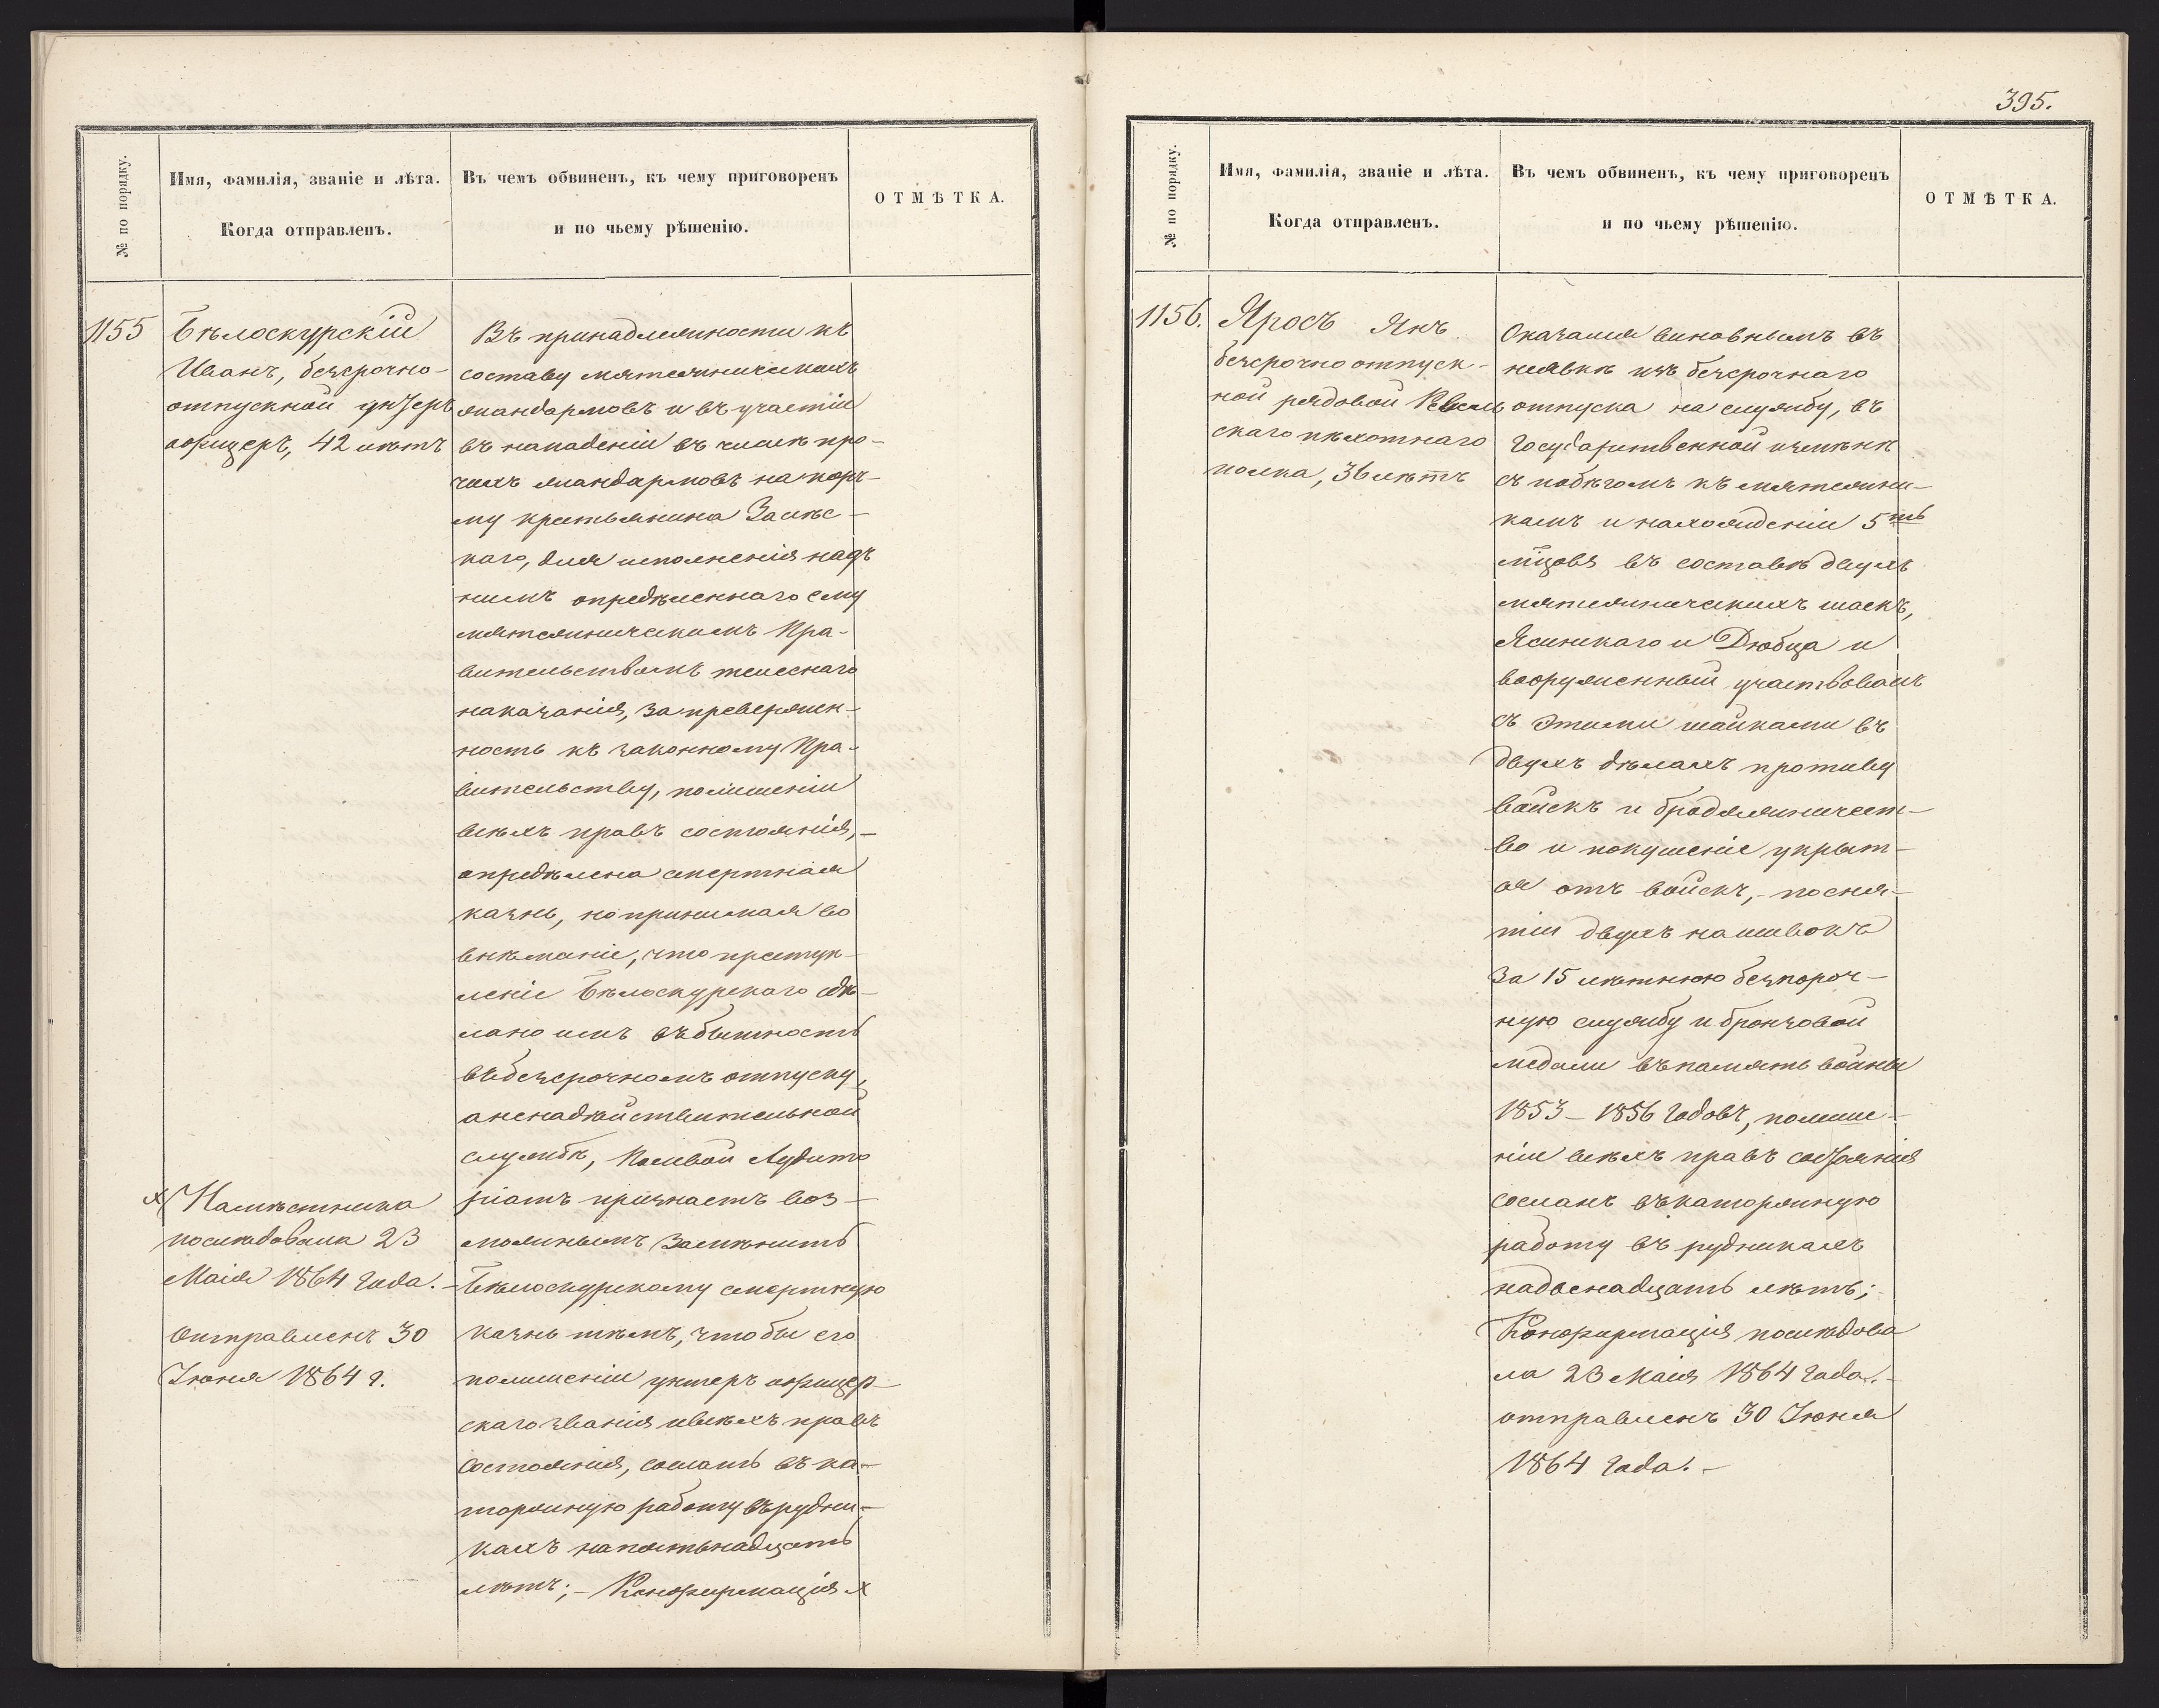 № по порядку.
Имя, фамилія, званіе и лѣта.
Когда отправленъ.
Въ чемъ обвиненъ, къ чему приговоренъ
и по чьему рѣшенію.
ОТМѢТКА.
1155
Бѣлоскурскій
Иванъ, безсрочно-
отпускной унтеръ
офицеръ, 42 лѣтъ
х Намѣстника
послѣдовала 23
Маія 1864 года.-
Отправленъ 30
Іюня 1864 г.
Въ принадлежности къ
составу мятежническихъ
жандармовъ и въ участіи
въ нападеніи въ числѣ про-
чихъ жандармовъ на корч-
му крестьянина Залѣс-
каго, для исполненія надъ
нимъ опредѣленнаго ему
мятежническимъ Пра-
вительствомъ телеснаго
наказанія, за привержен-
ность къ законному Пра-
вительству, по лишеніи
всѣхъ правъ состоянія,-
опредѣлена смертная
казнь, но принимая во
вниманіе, что преступ-
леніе Бѣлоскурскаго сдѣ-
лано имъ въ бытность
въ безсрочномъ отпуску,
а не на дѣйствительной
службѣ, Полевой Аудито
ріатъ призналъ воз-
можнымъ замѣнить
Бѣлоскурскому смертную
казнь тѣмъ, чтобы его
по лишеніи унтеръ офицер-
скаго званія и всѣхъ правъ
состоянія, сослать въ ка-
торжную работу въ рудни-
кахъ на пятьнадцать
лѣтъ;- Конфирмація х
395.
№ по порядку.
Имя, фамилія, званіе и лѣта.
Когда отправленъ.
Въ чемъ обвиненъ, къ чему приговоренъ
и по чьему рѣшенію.
ОТМѢТКА.
1156.
Яросъ Янъ
безсрочно отпуск-
ной рядовой Ревель
скаго пѣхотнаго
полка, 36 лѣтъ
Оказался виновнымъ въ
неявкѣ изъ безсрочнаго
отпуска на службу, въ
Государственной измѣнѣ
съ побѣгомъ къ мятежни-
камъ и нахожденіи 5ть
мцовъ въ составѣ двухъ
мятежническихъ шаекъ,
Ясинскаго и Дюбца и
вооруженный участвовалъ
съ этими шайками въ
двухъ дѣлахъ противу
войскъ и бродяжничест-
во и покушеніе укрыт-
ся отъ войскъ,- по сня-
тіи двухъ нашивокъ
за 15 лѣтнюю безпороч-
ную службу и бронзовой
медали въ память войны
1853-1856 годовъ, по лише-
ніи всѣхъ правъ состоянія
сосланъ въ каторжную
работу въ рудникахъ
на двенадцать лѣтъ;
Конфирмація послѣдова
ла 23 Маія 1864 года.-
отправленъ 30 Іюня
1864 года.-